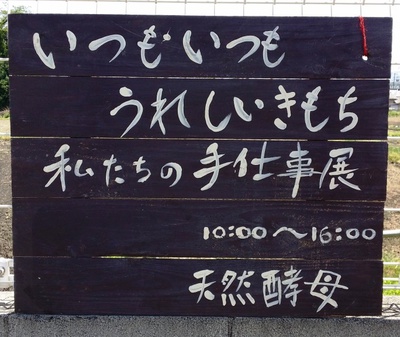 いつもいつも
うれしいきもち
私たちの手仕事展
10:00〜16:00
天然酵母